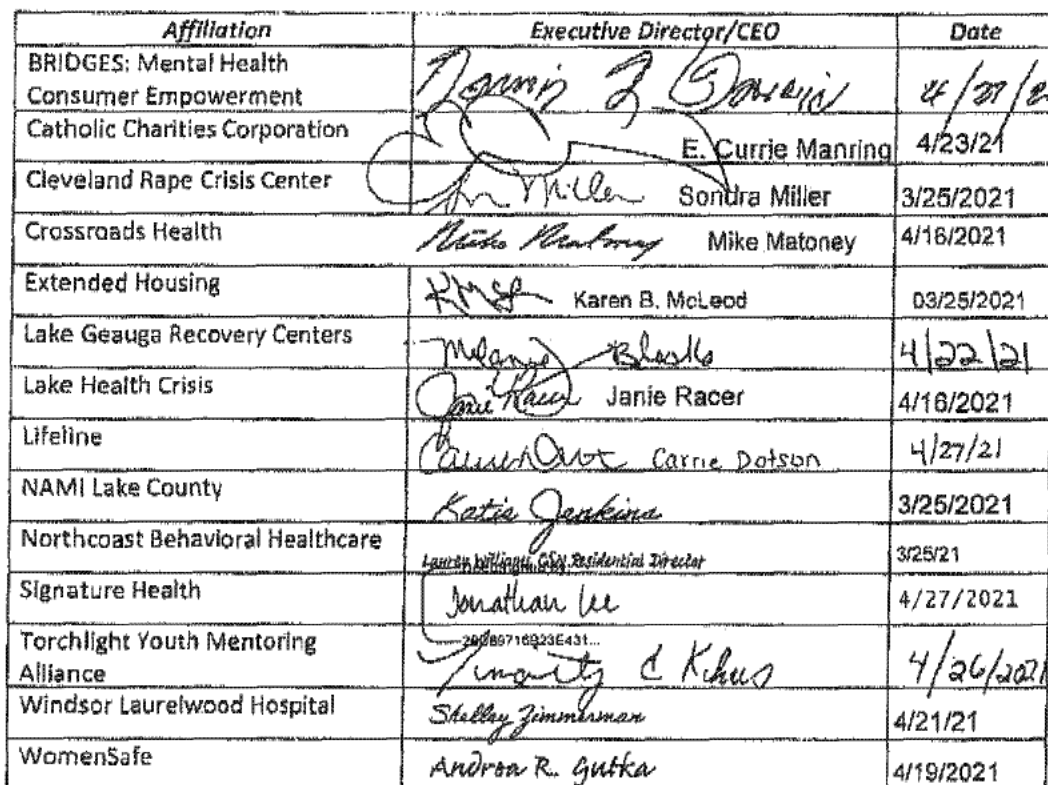 Affiliation Executive Director/CEO Date
BRIDGES: Mental Health
Consumer Empowerment 4/27/2
Catholic Charities Corporation E. Currie Manring 4/23/21
Cleveland Rape Crisis Center Miller Sondra Miller 3/25/2021
Crossroads Health Mike Matoney Mike Matoney 4/16/2021
Extended Housing Karen B. McLeod 03/25/2021
Lake Geauga Recovery Centers Melanie Blasko 4/22/21
Lake Health Crisis Janie Racer Janie Racer 4/16/2021
Lifeline Carrie Dotson 4/27/21
NAMI Lake County Katie Jenkins 3/25/2021
Northcoast Behavioral Healthcare Lauren Williams, Residential Director 3/25/21
Signature Health Jonathan Lee 4/27/2021
Torchlight Youth Mentoring
Alliance Timothy C 4/26/2021
Windsor Laurelwood Hospital Shelley Zimmerman 4/21/21
WomenSafe Andrea R. Gutka 4/19/2021